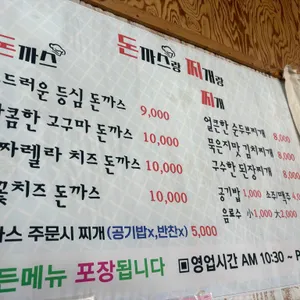 돈까스
돈까스랑 찌개랑
찌개
드러운 등심 돈까스 9,000
콤한 고구마 돈까스 10,000
짜렐라 치즈 돈까스 10,000
치즈 돈까스 10,000
얼큰한 순두부찌개 8,000
묵은지맛 김치찌개 8,000
구수한 된장찌개 8,000
공기밥 1,000 소주/맥주
음료수 소1,000 大2,000
까스 주문시 찌개 (공기밥x,반찬x) 5,000
든메뉴 포장됩니다
영업시간 AM 10:30 ~ P